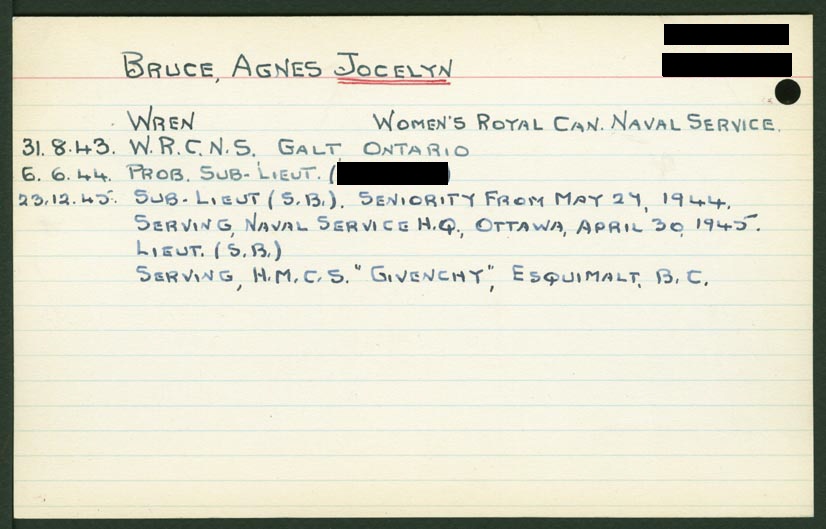 BRUCE, AGNES JOCELYN
WREN WOMEN'S ROYAL CAN. NAVAL SERVICE.
31.8.43. W.R.C.N.S. GALT ONTARIO
6.6.44. PROB. SUB-LIEUT. ( )
23.12.45. SUB-LIEUT (S.B.). SENIORITY FROM MAY 24, 1944.
SERVING, NAVAL SERVICE H.Q., OTTAWA, APRIL 30, 1945.
LIEUT. (S.B.)
SERVING, H.M.C.S. "GIVENCHY", ESQUIMALT, B.C.